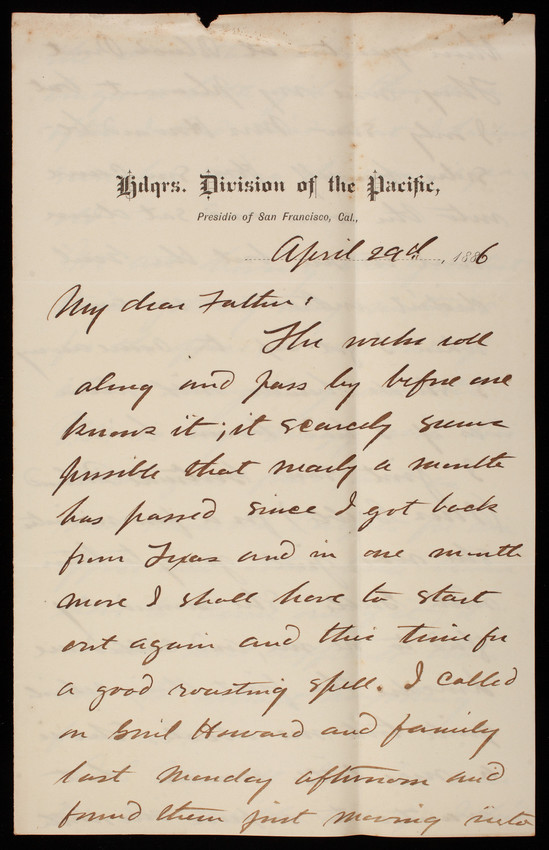 Hdqrs. Division of the Pacific,
Presidio of San Francisco, Cal.,
April 29th, 1886
My dear Father:
The weeks roll
along and pass by before one
knows it; it scarcely seems
possible that nearly a month
has passed since I got back
from Texas and in one month
more I shall have to start
out again and this time for
a good roasting spell. I called
on Genl Howard and family
last Monday afternoon and
found them just moving into